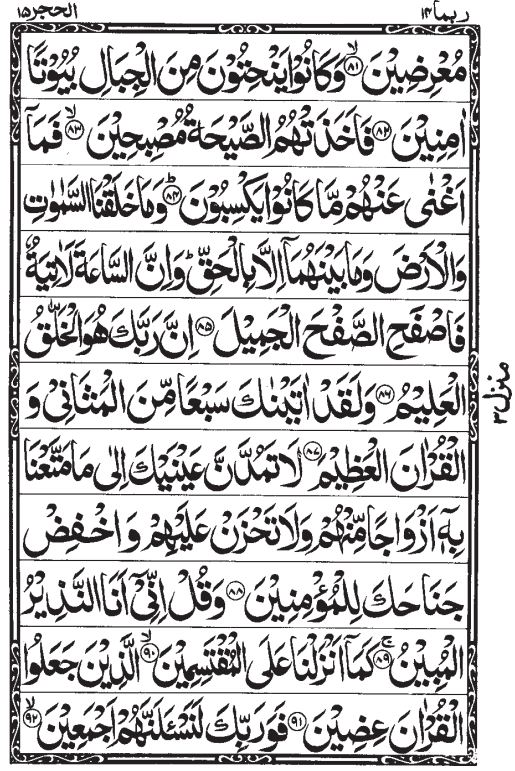 ربما ١٤
الحجر ١٥
مُعْرِضِيْنَ ۙ‏﴿۸۱﴾ وَكَانُوْا يَنْحِتُوْنَ مِنَ الْجِبَالِ بُيُوْتًا
اٰمِنِيْنَ ﴿۸۲﴾ فَاَخَذَتْهُمُ الصَّيْحَةُ مُصْبِحِيْنَ ۙ‏﴿۸۳﴾ فَمَاۤ
اَغْنٰى عَنْهُمْ مَّا كَانُوْا يَكْسِبُوْنَ ؕ‏﴿۸۴﴾ وَمَا خَلَقْنَا السَّمٰوٰتِ
وَالْاَرْضَ وَمَا بَيْنَهُمَاۤ اِلَّا بِالْحَقِّ ؕ وَاِنَّ السَّاعَةَ لَاٰتِيَةٌ
فَاصْفَحِ الصَّفْحَ الْجَمِيْلَ ﴿۸۵﴾ اِنَّ رَبَّكَ هُوَ الْخَلّٰقُ
الْعَلِيْمُ ﴿۸۶﴾ وَلَقَدْ اٰتَيْنٰكَ سَبْعًا مِّنَ الْمَثَانِىْ وَ
الْقُرْاٰنَ الْعَظِيْمَ ﴿۸۷﴾ لَا تَمُدَّنَّ عَيْنَيْكَ اِلٰى مَا مَتَّعْنَا
بِهٖۤ اَزْوَاجًا مِّنْهُمْ وَلَا تَحْزَنْ عَلَيْهِمْ وَاخْفِضْ
جَنَاحَكَ لِلْمُؤْمِنِيْنَ ﴿۸۸﴾ وَقُلْ اِنِّىْۤ اَنَا النَّذِيْرُ
الْمُبِيْنُ ۚ‏﴿۸۹﴾ كَمَاۤ اَنْزَلْنَا عَلَى الْمُقْتَسِمِيْنَ ۙ‏﴿۹۰﴾ الَّذِيْنَ جَعَلُوا
الْقُرْاٰنَ عِضِيْنَ ﴿۹۱﴾ فَوَرَبِّكَ لَنَسْئَلَنَّهُمْ اَجْمَعِيْنَ ۙ‏﴿۹۲﴾
منزل ۳